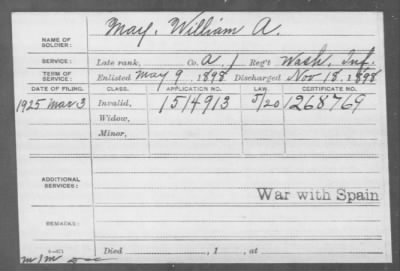 NAME OF SOLDIER: May, William A.
SERVICE: Late rank, Co. A, 1 Reg't Wash. Inf.
TERM OF SERVICE: Enlisted May 9, 1898 Discharged Nov 18, 1898
DATE OF FILING. CLASS. APPLICATION NO. LAW. CERTIFICATE NO.
1925 Mar 3 Invalid, 1514913 5/20 1268769
Widow,
Minor,
ADDITIONAL SERVICES:
War with Spain
REMARKS:
Died , 1 , at